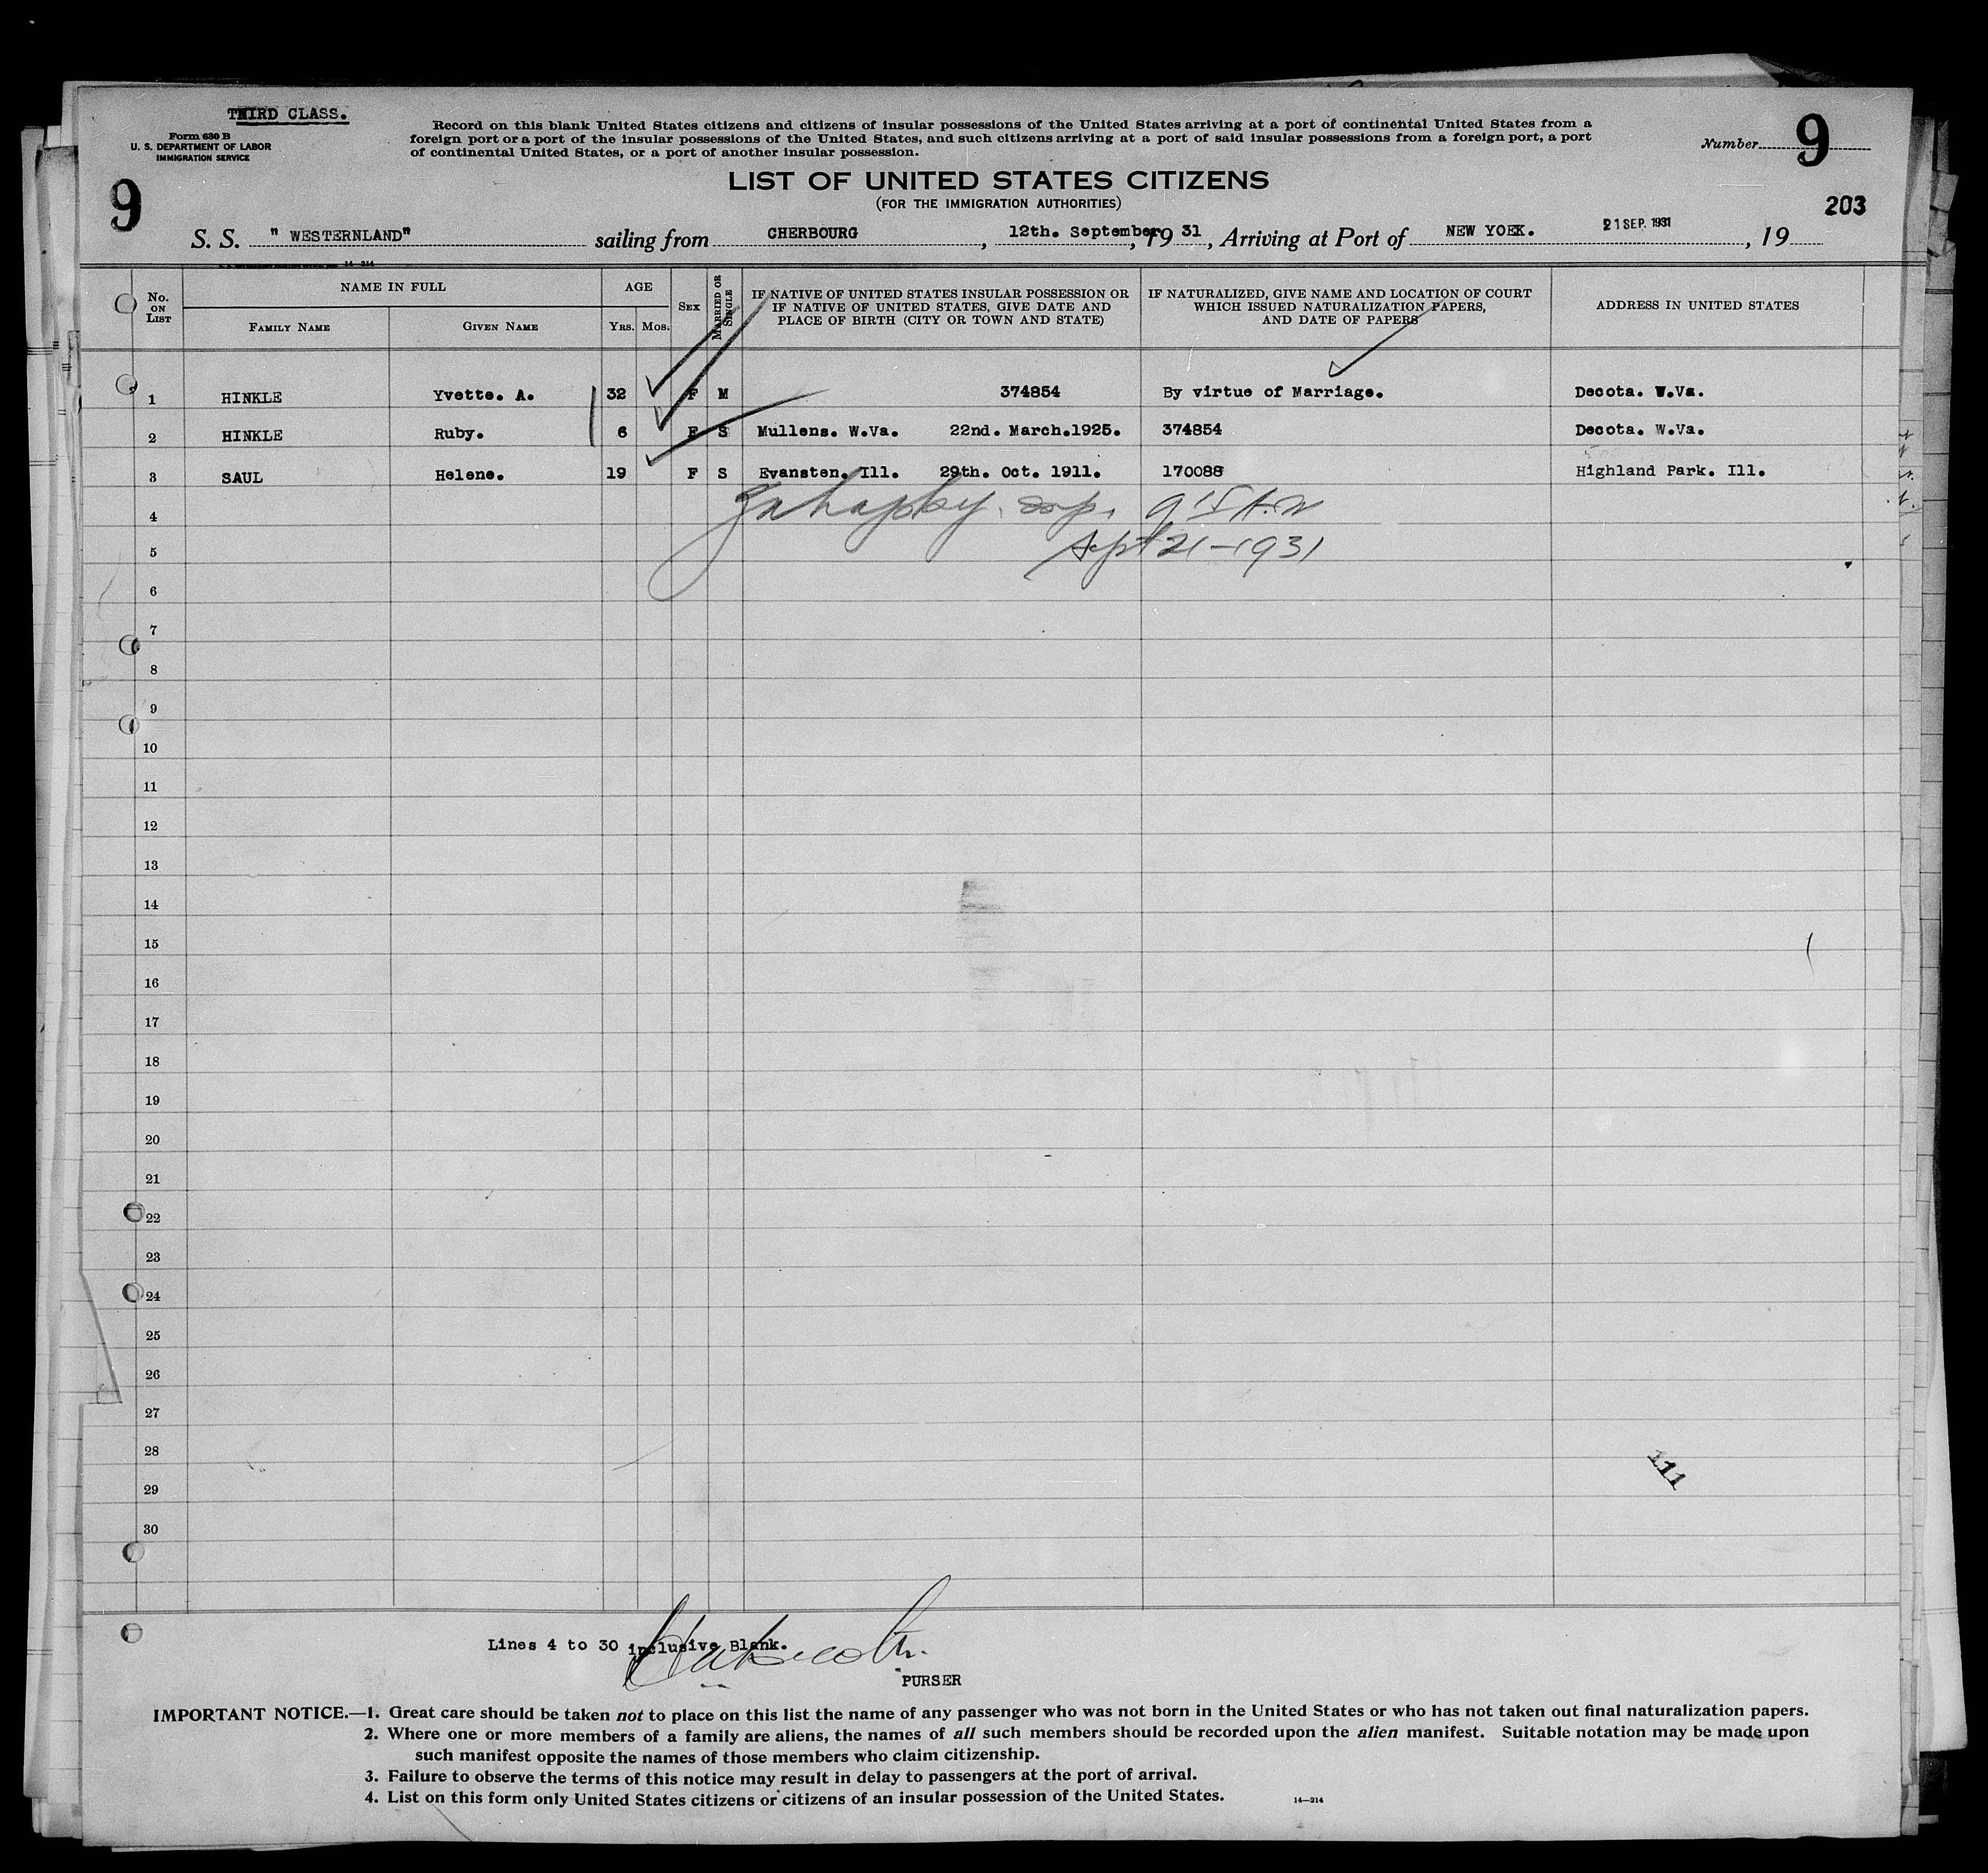 THIRD CLASS.
Form 630 B
U. S. DEPARTMENT OF LABOR
IMMIGRATION SERVICE
Record on this blank United States citizens and citizens of insular possessions of the United States arriving at a port of continental United States from a
foreign port or a port of the insular possessions of the United States, and such citizens arriving at a port of said insular possessions from a foreign port, a port
of continental United States, or a port of another insular possession.
Number 9
9
LIST OF UNITED STATES CITIZENS
(FOR THE IMMIGRATION AUTHORITIES)
203
S. S. " WESTERNLAND" sailing from CHERBOURG, 12th. September, 19 31, Arriving at Port of NEW YORK. 21 SEP. 1931, 19
14—214
No. ON LIST NAME IN FULL FAMILY NAME GIVEN NAME AGE YRS. MOS. SEX MARRIED OR SINGLE IF NATIVE OF UNITED STATES INSULAR POSSESSION OR IF NATIVE OF UNITED STATES, GIVE DATE AND PLACE OF BIRTH (CITY OR TOWN AND STATE) IF NATURALIZED, GIVE NAME AND LOCATION OF COURT WHICH ISSUED NATURALIZATION PAPERS, AND DATE OF PAPERS ADDRESS IN UNITED STATES
1 HINKLE Yvette. A. 32 F M 374854 By virtue of Marriage. Decota. W.Va.
2 HINKLE Ruby. 6 F S Mullens. W.Va. 22nd. March.1925. 374854 Decota. W.Va.
3 SAUL Helene. 19 F S Evansten. Ill. 29th. Oct. 1911. 170088 Highland Park. Ill.
4
5 Sept 21-1931
6
7
8
9
10
11
12
13
14
15
16
17
18
19
20
21
22
23
24
25
26
27
28
29
30
111
Lines 4 to 30 inclusive Blank.
PURSER
IMPORTANT NOTICE.—1. Great care should be taken not to place on this list the name of any passenger who was not born in the United States or who has not taken out final naturalization papers.
2. Where one or more members of a family are aliens, the names of all such members should be recorded upon the alien manifest. Suitable notation may be made upon
such manifest opposite the names of those members who claim citizenship.
3. Failure to observe the terms of this notice may result in delay to passengers at the port of arrival.
4. List on this form only United States citizens or citizens of an insular possession of the United States.
14—214